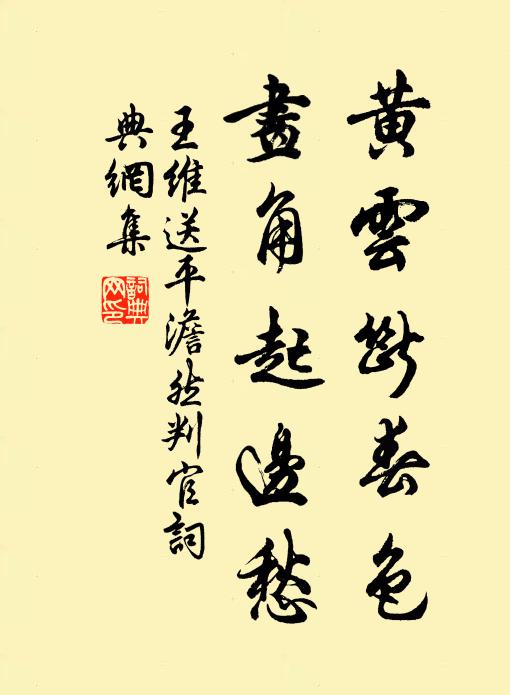 黃雲斷春色
畫角起邊愁
王維送平澹然判官詞
典網集
詞典
网印